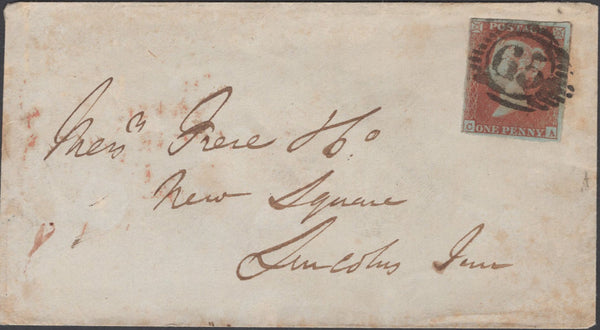 POSTAGE
65
C A
ONE PENNY
Mess^rs Frere & Co
New Square
Lincolns Inn